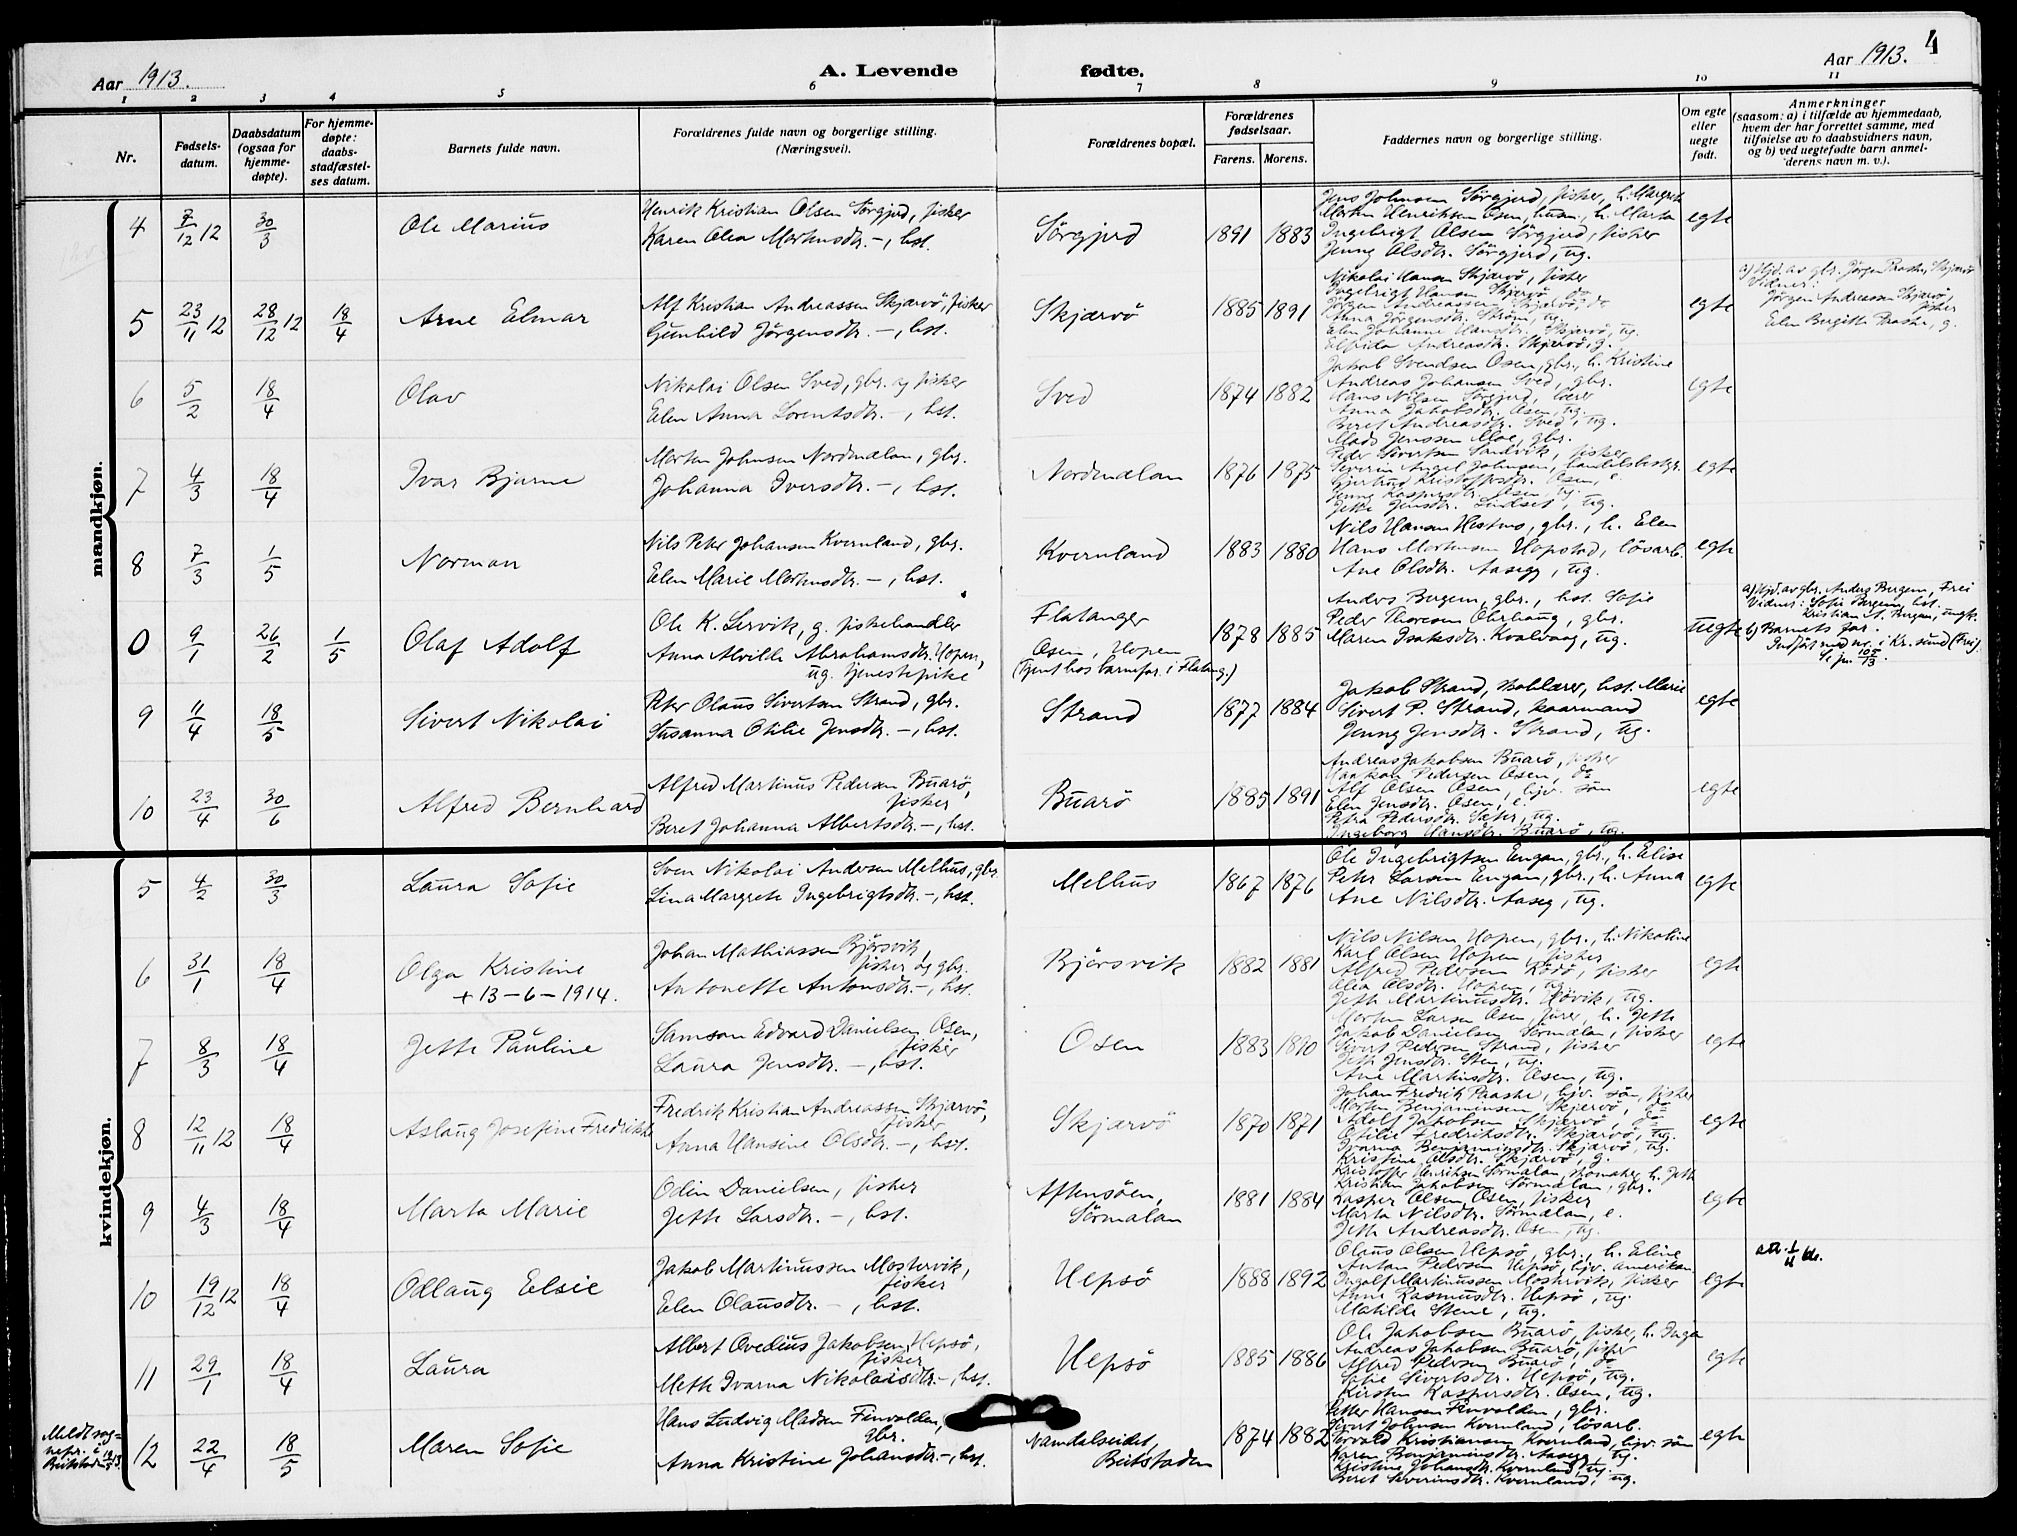 4
Aar 1913.
A. Levende fødte.
Aar 1913.
1 2 3 4 5 6 7 8 9 10 11
Nr.
Fødsels-
datum.
Daabsdatum
(ogsaa for
hjemme-
døpte).
For hjemme-
døpte:
daabs-
stadfæstel-
ses datum.
Barnets fulde navn.
Forældrenes fulde navn og borgerlige stilling.
(Næringsvei).
Forældrenes bopæl.
Forældrenes
fødselsaar.
Farens. Morens.
Faddernes navn og borgerlige stilling.
Om egte
eller
uegte
født.
Anmerkninger
(saasom: a) i tilfælde av hjemmedaab,
hvem der har forrettet samme, med
tilføielse av to daabsvidners navn,
og b) ved uegtefødte barn anmel-
derens navn m. v.).
mandkjøn.
4
7/12 12
30/3
Ole Marius
Henrik Kristian Olsen Sørgjerd, fisker
Karen Olea Mortensdtr. –, hst.
Sørgjerd
1891 1883
Jens Johnsen Sørgjerd, fisker, h. Margrete
Morten Henriksen Osen, husm., h. Marta
Ingebrigt Olsen Sørgjerd, fisker
Jenny Olsdtr. Sørgjerd, ug.
egte
5
23/11 12
28/12 12
18/4
Arne Elmar
Alf Kristian Andreassen Skjærvö, fisker
Gunhild Jörgensdtr. –, hst.
Skjærvö
1885 1891
Nikolai Hansen Skjærvö, fisker
Ingebrigt Hansen Skjærvö, do
Johan Andreassen Skjærvö, do
Anna Jörgensdtr. Ström, ug.
Elen Johanne Hansdtr. Skjærvö, ug.
Elfrida Andreasdtr. Skjærvö, g.
egte
a) Hjd. av gbr. Jörgen Paaske, Skjærvö
Vidner:
Jörgen Andreassen Skjærvö,
fisker
Elen Bergitte Paaske, g.
6
5/2
18/4
Olav
Nikolai Olsen Sved, gbr. og fisker
Elen Anna Lorentsdtr. –, hst.
Sved
1874 1882
Jakob Svendsen Osen, gbr., h. Kristine
Andreas Johansen Sved, gbr.
Hans Nilsen Sörgjerd, lærer
Anna Jakobsdtr. Osen, ug.
Beret Andreasdtr. Sved, ug.
egte
7
4/3
18/4
Ivar Bjarne
Morten Johnsen Nordmælan, gbr.
Johanna Iversdtr. –, hst.
Nordmælan
1876 1875
Mads Jenssen Moe, gbr.
Peder Sivertsen Sandvik, fisker
Severin Angel Johnsen, handelsbestyr.
Gjertrud Kristoffersdtr. Osen, e.
Jenny Kaspersdtr. Osen, ug.
Jette Jensdtr. Sundset, ug.
egte
8
7/3
1/5
Norman
Nils Peter Johansen Kvernland, gbr.
Elen Marie Mortensdtr. –, hst.
Kvernland
1883 1880
Nils Hansen Hestnes, gbr., h. Elen
Hans Mortensen Hopstad, lösarb.
Ane Olsdtr. Aasegg, ug.
egte
0
9/1
26/2
1/5
Olaf Adolf
Ole K. Lervik, g. fiskehandler
Anna Alvilde Abrahamsdtr. Hopen,
ug. tjenestepike
Flatanger
Osen, Hopen
(tjent hos barnefar. i Flatang.)
1878 1885
Anders Bergem, gbr., hst. Sofie
Peder Thoresen Ohrhaug, gbr.
Maren Isaksdtr. Kvalvaag, ug.
uegte
a) Hjd. av gbr. Anders Bergem, Frei
Vidner: Sofie Bergem, hst.
Kristian A. Bergem, ungk.
b) Barnets far.
Indført med nr. i Kr.sund (Frei).
Se jn. 105/13.
9
11/4
18/5
Sivert Nikolai
Peter Olaus Sivertsen Strand, gbr.
Susanna Otilie Jensdtr. –, hst.
Strand
1877 1884
Jakob Strand, skolelærer, hst. Marie
Sivert P. Strand, kaarmand
Jenny Jensdtr. Strand, ug.
egte
10
23/4
30/6
Alfred Bernhard
Alfred Martinus Pedersen Buarö,
fisker
Beret Johanna Albertsdtr. –, hst.
Buarö
1885 1891
Andreas Jakobsen Buarö, fisker
Haakon Pedersen Osen, do
Alf Olsen Osen, hjv. sön
Elen Jensdtr. Osen, e.
Petra Pedersdtr. Sæter, ug.
Ingeborg Hansdtr. Buarö, ug.
egte
kvindekjøn.
5
4/2
30/3
Laura Sofie
Sven Nikolai Andersen Melhus, gbr.
Lina Margrete Ingebrigtsdtr. –, hst.
Melhus
1867 1876
Ole Ingebrigtsen Engan, gbr., h. Elise
Peter Larsen Engan, gbr., h. Anna
Ane Nilsdtr. Aaseg, ug.
egte
6
31/1
18/4
Olga Kristine
+ 13-6-1914.
Johan Mathiassen Björsvik,
fisker og gbr.
Antonette Antonsdtr. –, hst.
Björsvik
1882 1881
Nils Nilsen Hopen, gbr., h. Nikoline
Karl Olsen Hopen, fisker
Alfred Pedersen Rödö, fisker
Olea Olsdtr. Hopen, ug.
Jette Martinusdtr. Hövik, ug.
egte
7
8/3
18/4
Jette Pauline
Samson Edvard Danielsen Osen,
fisker
Laura Jensdtr. –, hst.
Osen
1883 1890
Morten Larsen Osen, fører, h. Jette
Jakob Danielsen Sörmælan, fisker
Sivert Pedersen Strand, fisker
Jette Jensdtr. Sten, ug.
Ane Martinsdtr. Osen, ug.
egte
8
12/11 12
18/4
Aslaug Josefine Fredrikke
Fredrik Kristian Andreassen Skjærvö,
fisker
Anna Hansine Olsdtr. –, hst.
Skjærvö
1870 1871
Johan Fredrik Paaske, hjv. sön, fisker
Morten Benjaminsen Skjervö, do
Adolf Jakobsen Skjærvö, do
Otilie Fredriksdtr. Skjærvö, ug.
Ivarna Benjaminsdtr. Skjærvö, ug.
Kristine Olsdtr. Skjærvö, g.
egte
9
4/3
18/4
Marta Marie
Odin Danielsen, fisker
Jette Larsdtr. –, hst.
Aftensöen,
Sörmælan
1881 1884
Kristoffer Henriksen Sörmælan, skomaker, h. Jette
Kristian Jakobsen Sörmælan, gbr.
Kasper Olsen Osen, fisker
Marta Nilsdtr. Sörmælan, e.
Jette Andreasdtr. Osen, ug.
egte
10
19/12 12
18/4
Odlaug Elsie
Jakob Martinussen Mostervik,
fisker
Elen Olausdtr. –, hst.
Hepsö
1888 1892
Olaus Olsen Hepsö, gbr., h. Eline
Anton Pedersen Hepsö, hjv. amerikan.
Ingolf Martinussen Mostervik, fisker
Anne Rasmusdtr. Hepsö, ug.
Matilde Stene, ug.
egte
11
29/1
18/4
Laura
Albert Ovedius Jakobsen Hepsö,
fisker
Mette Ivarna Nikolaisdtr. –, hst.
Hepsö
1885 1886
Ole Jakobsen Buarö, fisker, h. Inga
Andreas Jakobsen Buarö, fisker
Alfred Pedersen Buarö, do
Sofie Sivertsdtr. Hepsö, ug.
Kirsten Kaspersdtr. Osen, ug.
egte
Meldt sog-
nepr. i
Beitstaden
12
22/4
18/5
Maren Sofie
Hans Ludvig Madsen Finvolden,
gbr.
Anna Kristine Johansdtr. –, hst.
Namdalseidet,
Beitstaden
1874 1882
Petter Hansen Finvolden, gbr.
Sivert Johnsen Kvernland, lösarb.
Torvald Kristiansen Kvernland, hjv. sön
Karen Benjaminsdtr. Aasegg, ug.
Kristine Johansdtr. Kvernland, ug.
Beret Severinsdtr. Kvernland, ug.
egte